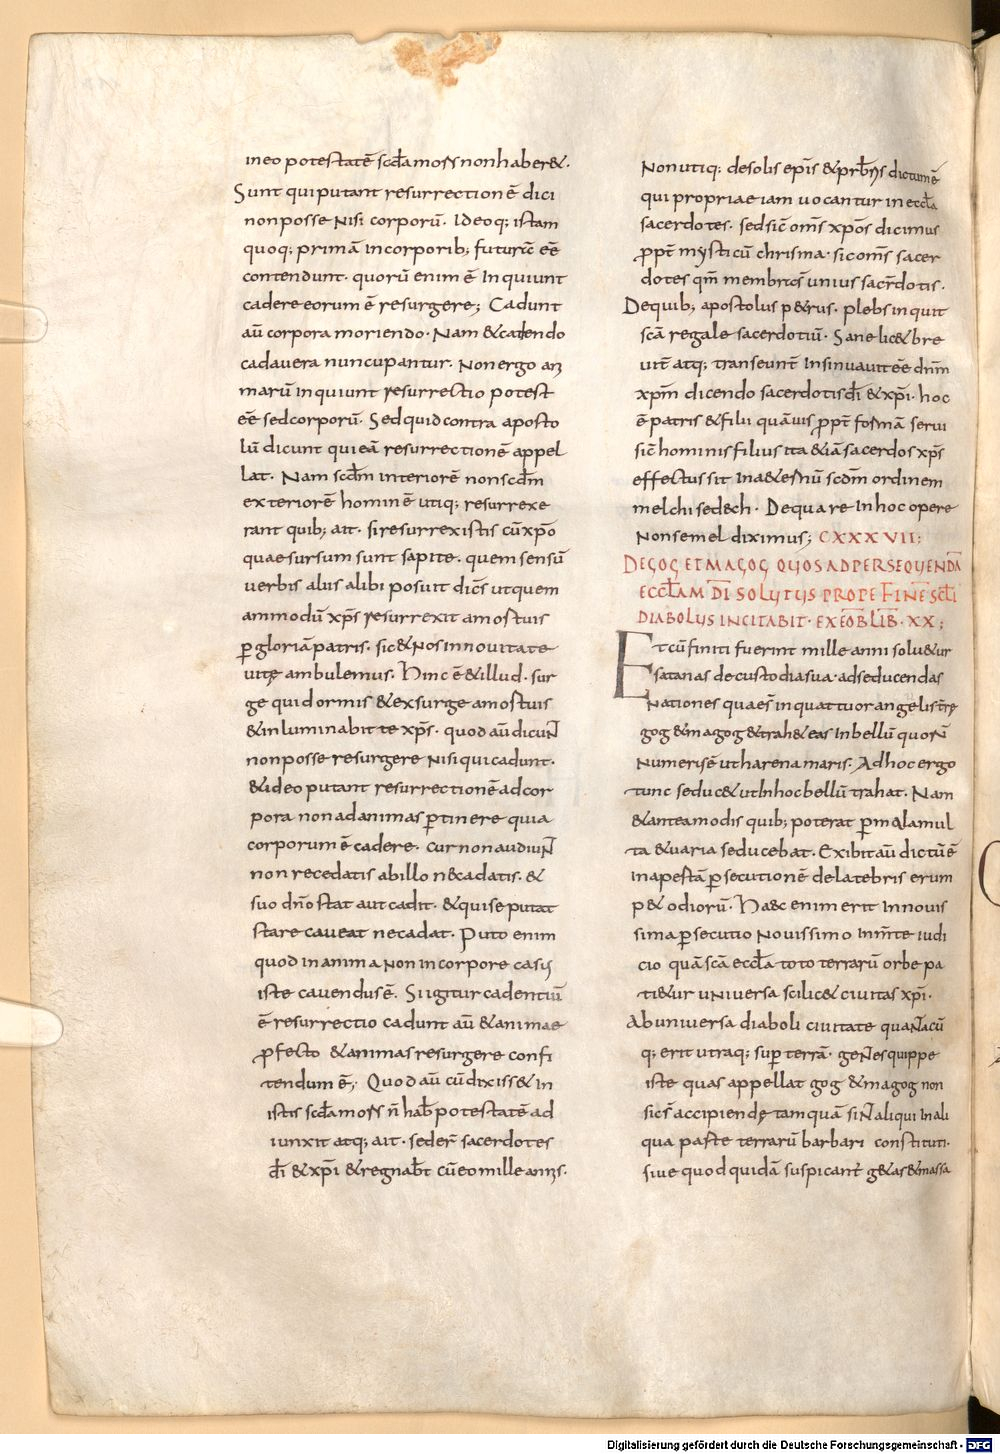 in eo potestatē scd̄a mors non haber&.
Sunt qui putant resurrectionē dici
non posse nisi corporū. Ideoq; istam
quoq; primā in corporib; futurā eē
contendunt. quorū enim ē inquiunt
cadere eorum ē resurgere; Cadunt
aū corpora moriendo. Nam & cadendo
cadavera nuncupantur. Non ergo ani
marū inquiunt resurrectio potest
eē sed corporū. Sed quid contra aposto
lū dicunt qui eā resurrectionē appel
lat. Nam scdm̄ interiorē non scdm̄
exteriorē hominē utiq; resurrexe
rant quib; ait. si resurrexistis cū xp̄o
quae sursum sunt sapite. quem sensū
verbis aliis alibi posuit dicēs ut quem
ammodū xp̄s resurrexit a mortuis
p gloriā patris. sic & nos in novitate
vitę ambulemus. Hinc ē & illud. sur
ge qui dormis & exsurge a mortuis
& inluminabit te xp̄s. quod aū dicuN̄
non posse resurgere nisi qui cadunt.
& ideo putant resurrectionē ad cor
pora non ad animas ptinere quia
corporum ē cadere. cur non audiuN̄
non recedatis ab illo ne cadatis. &
suo dn̄o stat aut cadit. & qui se putat
stare caveat ne cadat. Puto enim
quod in anima non in corpore casus
iste cavendus ē. Si igitur cadentiū
ē resurrectio cadunt aū & animae
pfecto & animas resurgere confi
tendum ē; Quod aū cū dixiss& in
istis scd̄a mors n̄ hab̄ potestatē ad
iunxit atq; ait. sed er̄ sacerdotes
dī & xp̄i & regnab̄t cū eo mille annis.
Non utiq; de solis ep̄is & prb̄ris dictum ē
qui propriae iam vocantur in eccl̄a
sacerdotes. sed sic̄ oms̄ xp̄os dicimus
ppt̄ mysticū chrisma. sic oms̄ sacer
dotes qm̄ membra s̄ unius sacr̄dotis.
De quib; apostolus p&rus. plebs inquit
scā regale sacerdotiū. Sane lic& bre
vit̄ atq; transeunt̄ insinuavit eē dnm̄
xp̄m dicendo sacerdotis dī & xp̄i. hoc
ē patris & filii quāvis ppt̄ formā servi
sic̄ hominis filius ita &iā sacerdos xp̄s
effectus sit in a&ernū scdm̄ ordinem
melchisedech. De qua re in hoc opere
non semel diximus; CXXXVII;
DE GOG ET MAGOG QUOS AD PERSEQUENDĀ
ECCL̄AM DĪ SOLUTUS PROPE FINĒ SCL̄I
DIABOLUS INCITABIT. EX EOD̄ LIB̄. XX;
Et cū finiti fuerint mille anni solu&ur
satanas de custodia sua. ad seducendas
nationes quae s̄ in quattuor angelis tr̄ę
gog & magog & trah& eas in bellū quorN̄
numerus ē ut harena maris. Ad hoc ergo
tunc seduc& ut in hoc bellū trahat. Nam
& antea modis quib; poterat p mala mul
ta & varia seducebat. Exibit aū dictū ē
in apertā psecutionē de latebris erum
p& odiorū. Haec enim erit in novis
sima psecutio novissimo inm̄te iudi
cio quā scā eccl̄a toto terrarū orbe pa
ti&ur universa scilic& civitas xp̄i.
Ab universa diaboli civitate quaN̄acū
q; erit utraq; sup terrā. geN̄es quippe
iste quas appellat gog & magog non
sic s̄ accipiendę tamquā siN̄ aliqui in ali
qua parte terrarū barbari constituti.
sive quod quidā suspicant̄ g&as & massa